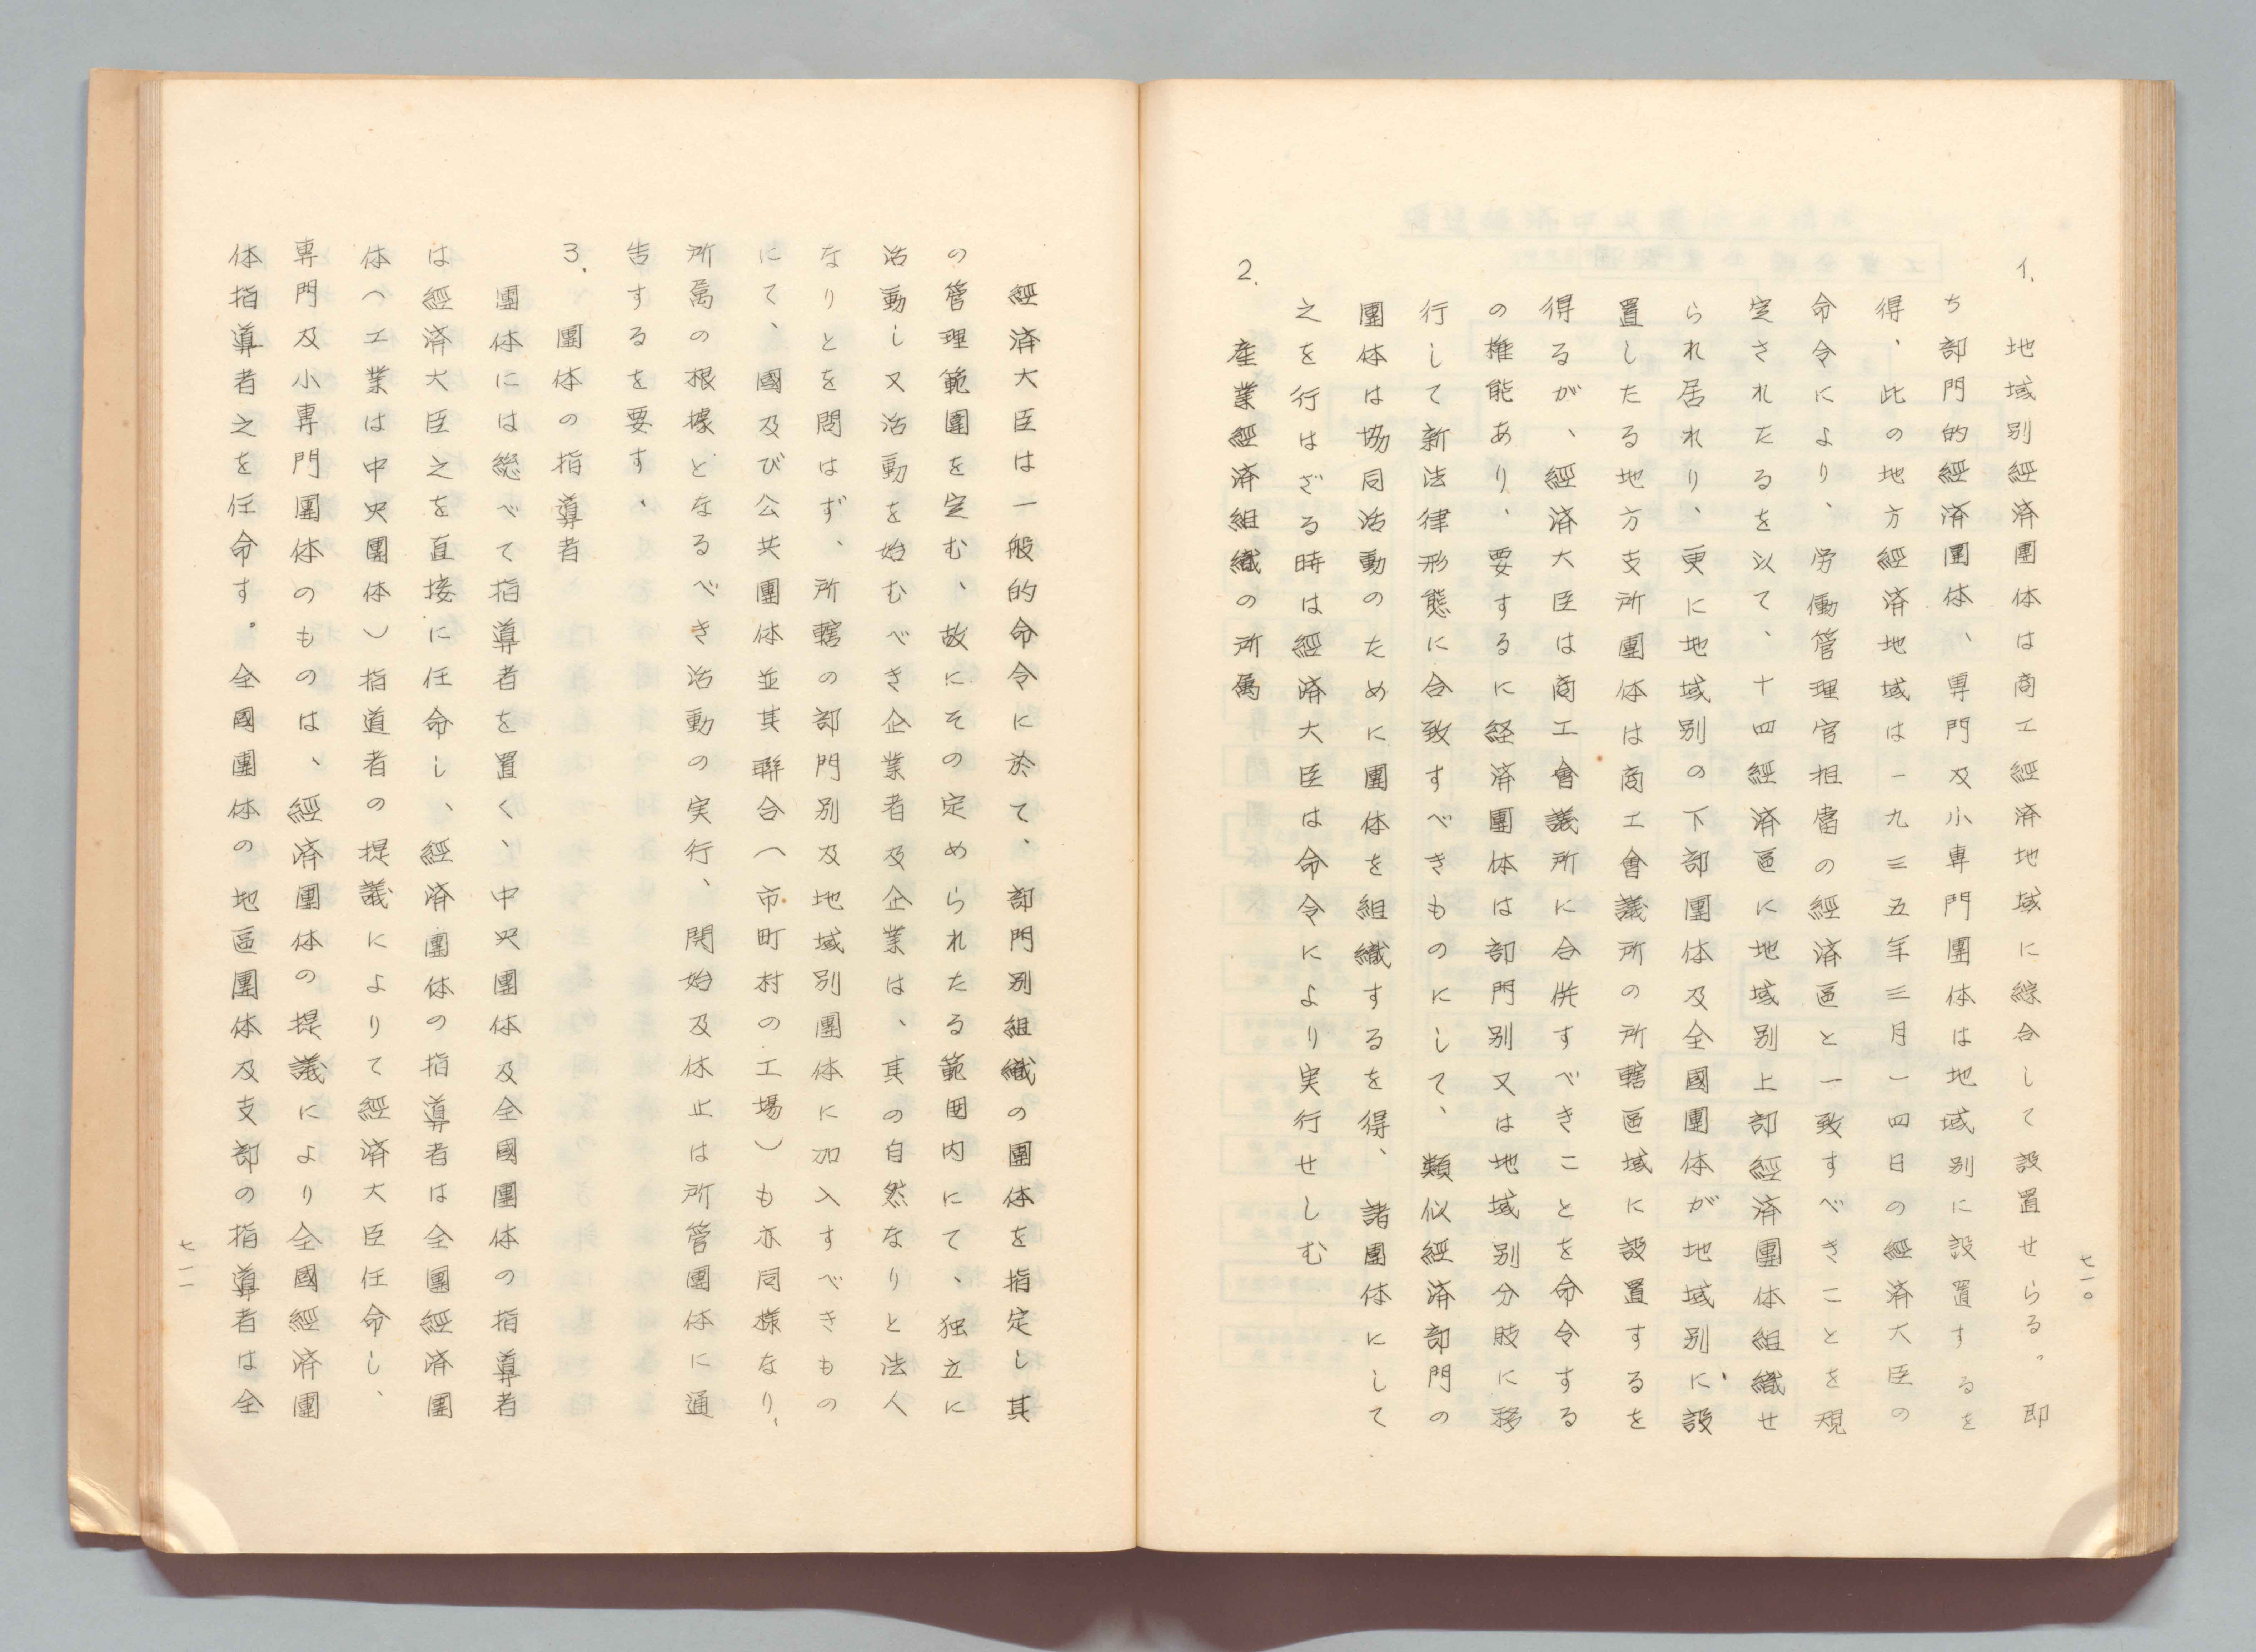 七一〇
1. 地域別經済團体は商工經済地域に綜合して設置せらる。即
ち部門的經済團体、専門及小専門團体は地域別に設置するを
得、此の地方經済地域は一九三五年三月一四日の經済大臣の
命令により、労働管理官担當の經済區と一致すべきことを規
定されたるを以て、十四經済區に地域別上部經済團体組織せ
られ居れり、更に地域別の下部團体及全國團体が地域別に、設
置したる地方支所團体は商工會議所の所轄區域に設置するを
得るが、經済大臣は商工會議所に合併すべきことを命令する
の権能あり、要するに経済團体は部門別又は地域別分肢に移
行して新法律形態に合致すべきものにして、類似經済部門の
團体は協同活動のために團体を組織するを得、諸團体にして
之を行はざる時は經済大臣は命令により実行せしむ
2. 産業經済組織の所属
經済大臣は一般的命令に於て、部門別組織の團体を指定し其
の管理範圍を定む、故にその定められたる範囲内にて、独立に
活動し又活動を始むべき企業者及企業は、其の自然なりと法人
なりとを問はず、所轄の部門別及地域別團体に加入すべきもの
にて、國及び公共團体並其聯合（市町村の工場）も亦同様なり、
所属の根據となるべき活動の実行、開始及休止は所管團体に通
告するを要す、
3. 團体の指導者
團体には総べて指導者を置く、中央團体及全國團体の指導者
は經済大臣之を直接に任命し、經済團体の指導者は全團經済團
体（工業は中央團体）指道者の提議によりて經済大臣任命し、
専門及小専門團体のものは、經済團体の提議により全國經済團
体指導者之を任命す。全國團体の地區團体及支部の指導者は全
七一一